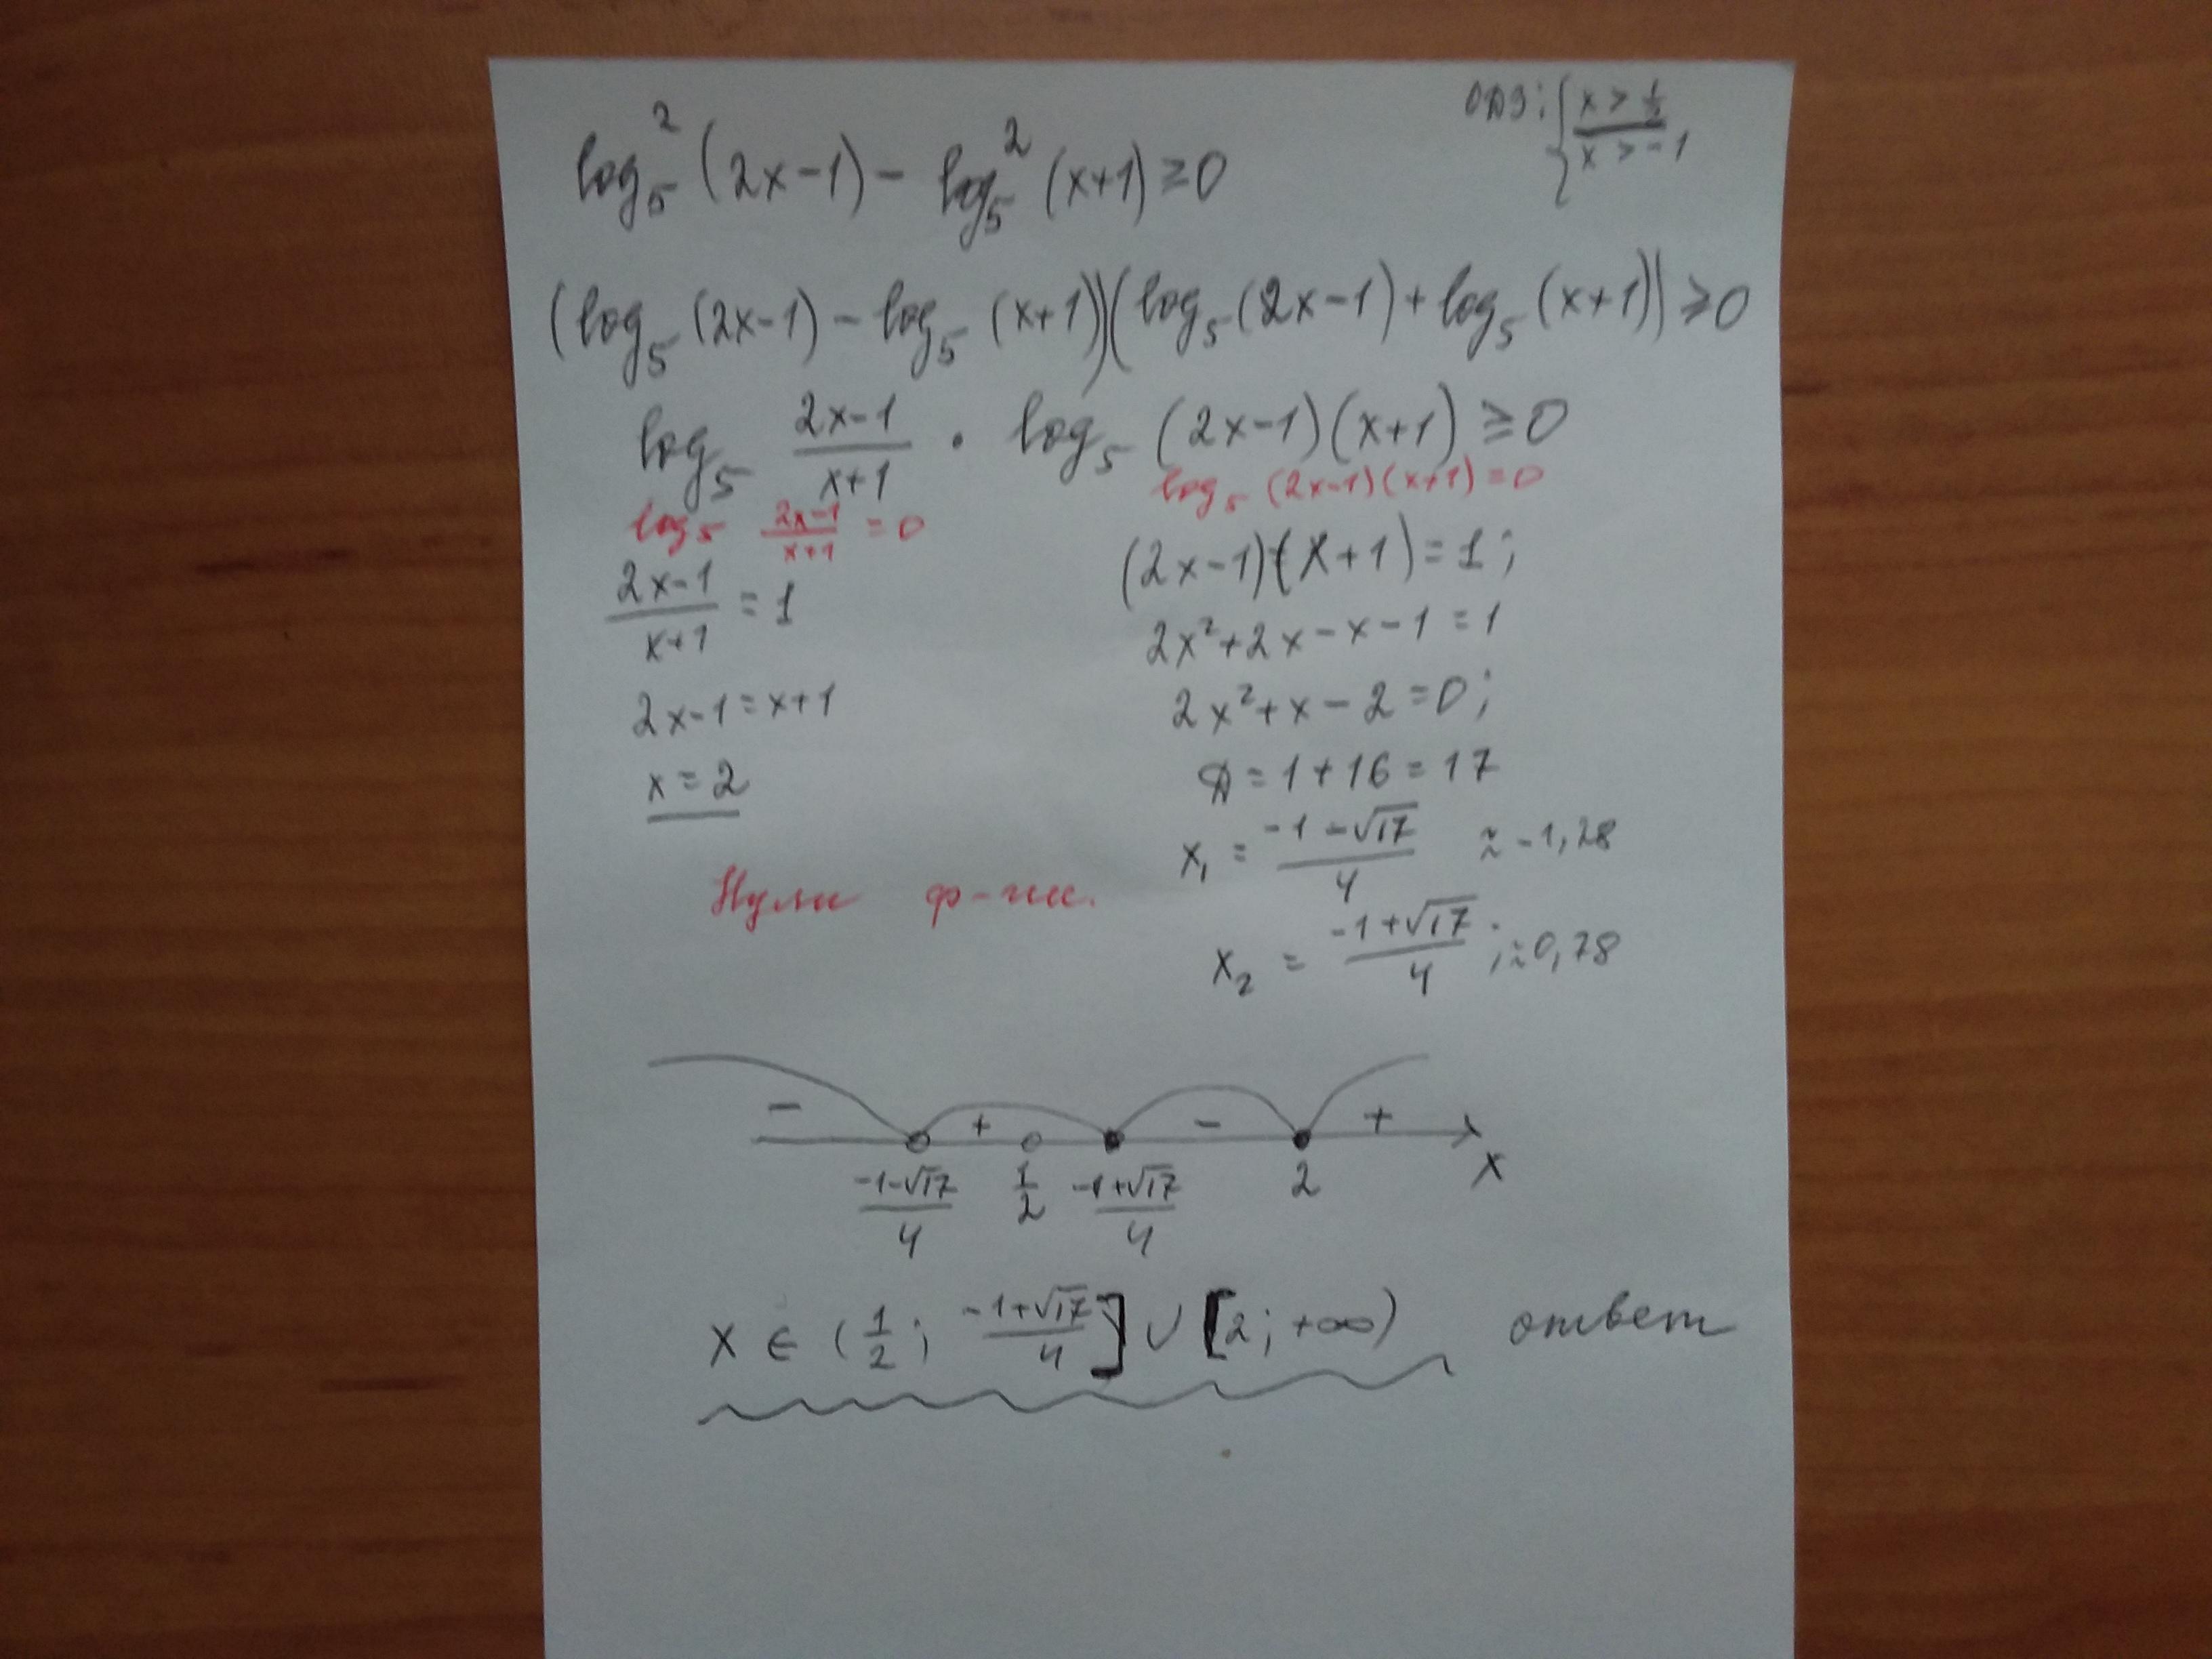 ОДЗ: { x > 1/2
x > -1
log₅² (2x-1) - log₅² (x+1) ≥ 0
(log₅ (2x-1) - log₅ (x+1))(log₅ (2x-1) + log₅ (x+1)) ≥ 0
log₅ (2x-1)/(x+1) · log₅ (2x-1)(x+1) ≥ 0
log₅ (2x-1)/(x+1) = 0
(2x-1)/(x+1) = 1
2x-1 = x+1
x = 2
log₅ (2x-1)(x+1) = 0
(2x-1)(x+1) = 1;
2x²+2x-x-1 = 1
2x²+x-2 = 0;
Д = 1+16 = 17
x₁ = (-1-√17)/4 ≈ -1,28
x₂ = (-1+√17)/4; ≈ 0,78
Нули ф-ии.
- + - +
(-1-√17)/4 1/2 (-1+√17)/4 2 x
x ∈ (1/2; (-1+√17)/4] ∪ [2; +∞) ответ